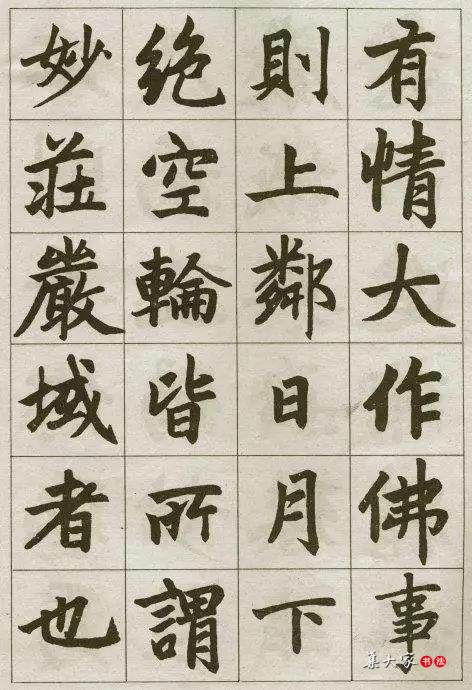 有情大作佛事
則上鄰日月下
絶空輪皆所謂
妙莊嚴域者也
集大家書法